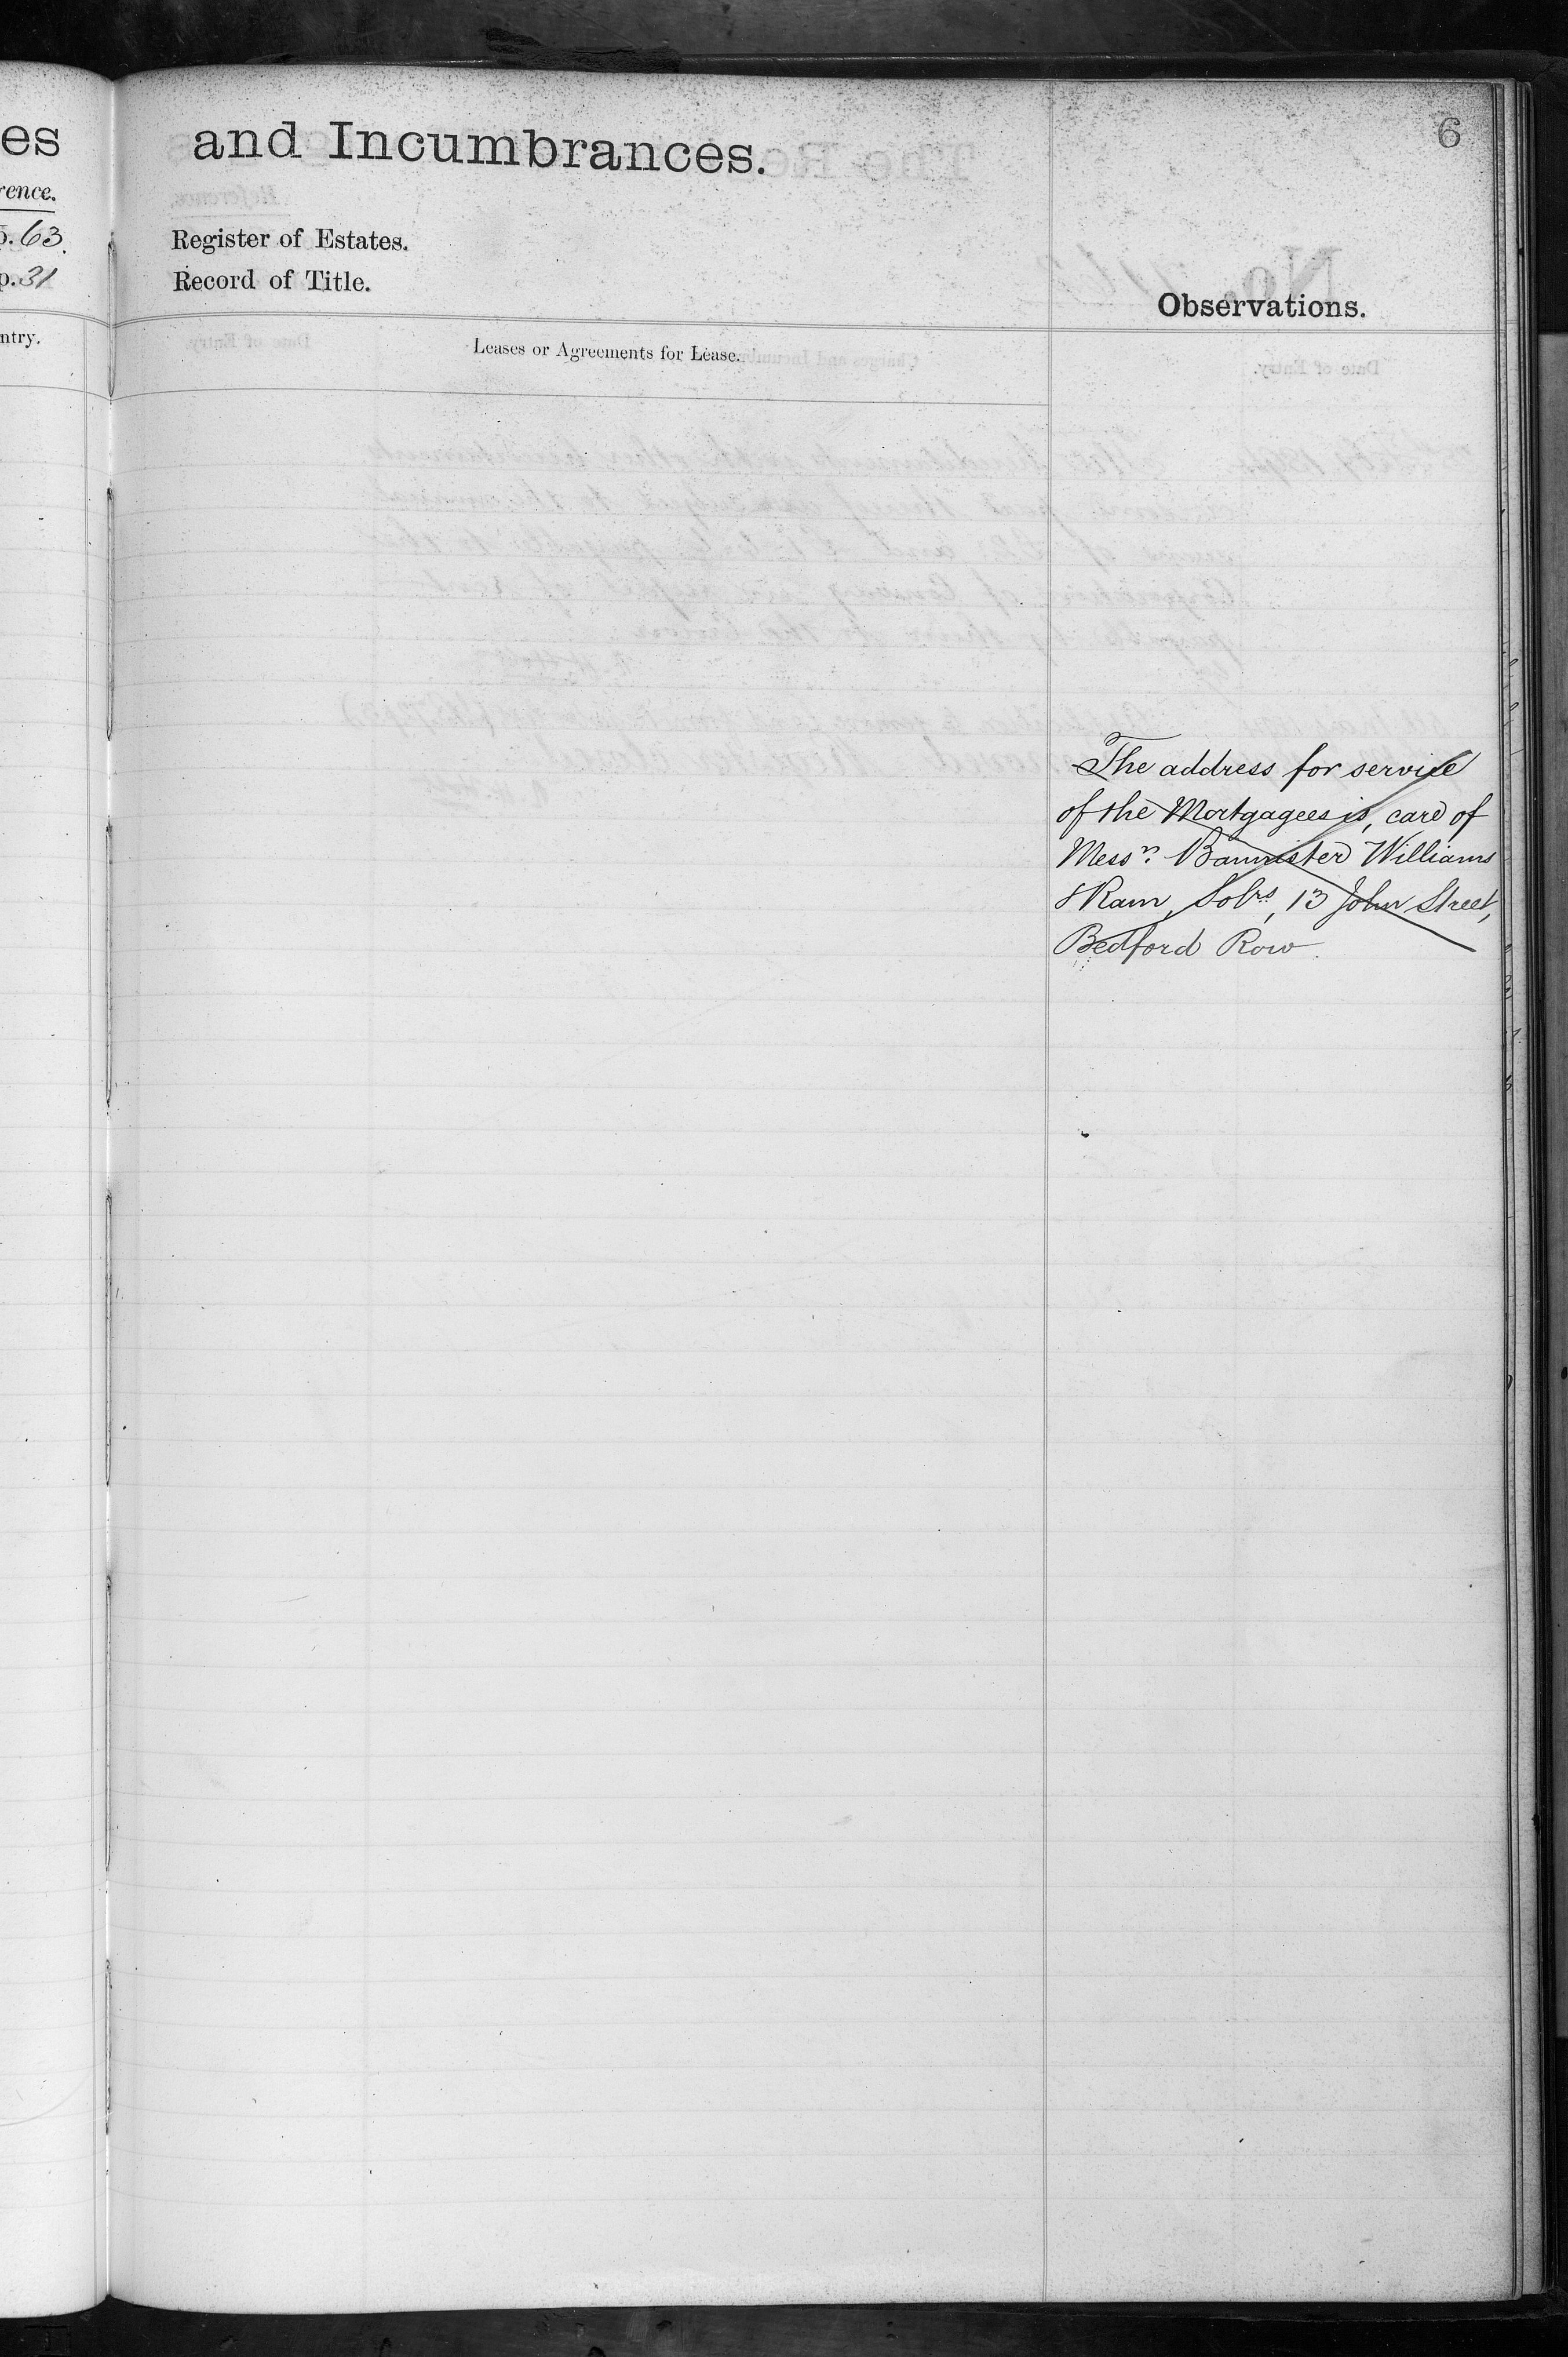 es
rence.
p. 63.
p. 31
ntry.
and Incumbrances.
6
Register of Estates.
Record of Title.
Observations.
Leases or Agreements for Lease.
The address for service
of the Mortgagees is, care of
Messrs. Bannister Williams
& Ram, Solrs, 13 John Street,
Bedford Row.